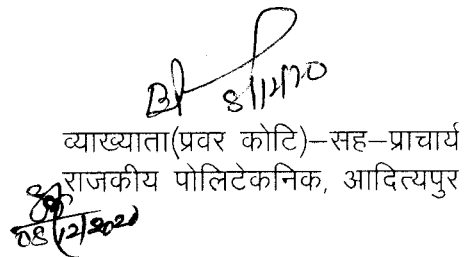 8/12/20
व्याख्याता(प्रवर कोटि)–सह–प्राचार्य
राजकीय पोलिटेकनिक, आदित्यपुर
08/12/2020